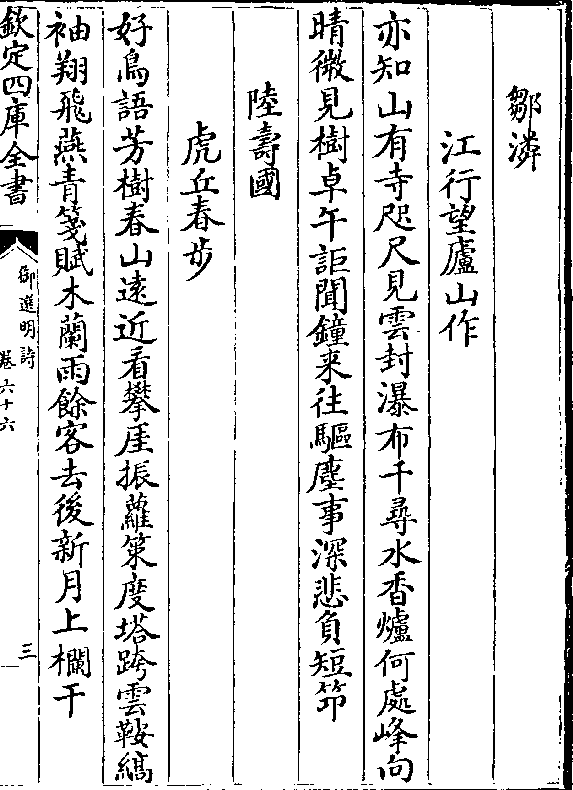 鄒潾
江行望廬山作
亦知山有寺咫尺見雲封瀑布千尋水香爐何處峰向
晴微見樹卓午詎聞鐘来往驅塵事深悲負短笻
陸壽國
虎丘春步
好鳥語芳樹春山遠近看攀厓振蘿策度塔跨雲鞍縞
袖翔飛燕青箋賦木蘭雨餘客去後新月上欄干
欽定四庫全書
御選明詩
卷六十六
三